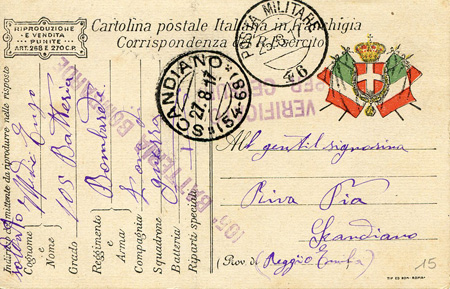 RIPRODUZIONE
E VENDITA
PUNITE
ART. 268 E 270 C.P.
Cartolina postale Italiana in Franchigia
Corrispondenza del R. Esercito
POSTA MILITARE
46
SCANDIANO
27.8.17
(154-89)
VERIFICATO
PER CENSURA
105ª BATTERIA BOMBARDE
Indirizzo del mittente da riprodurre nelle risposte
Cognome e Nome
Grado
Reggimento e Arma
Compagnia
Squadrone
Batteria
Riparti speciali
soldato
Enzo
105 Batteria
Bombarde
Zona
guerra
All gentil signorina
Riva Pia
Scandiano
(Prov. di Reggio Emilia)
15